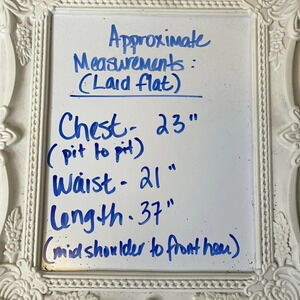 Approximate
Measurements:
(Laid flat)
Chest- 23"
(pit to pit)
Waist- 21"
Length-37"
(mid shoulder to front hem)